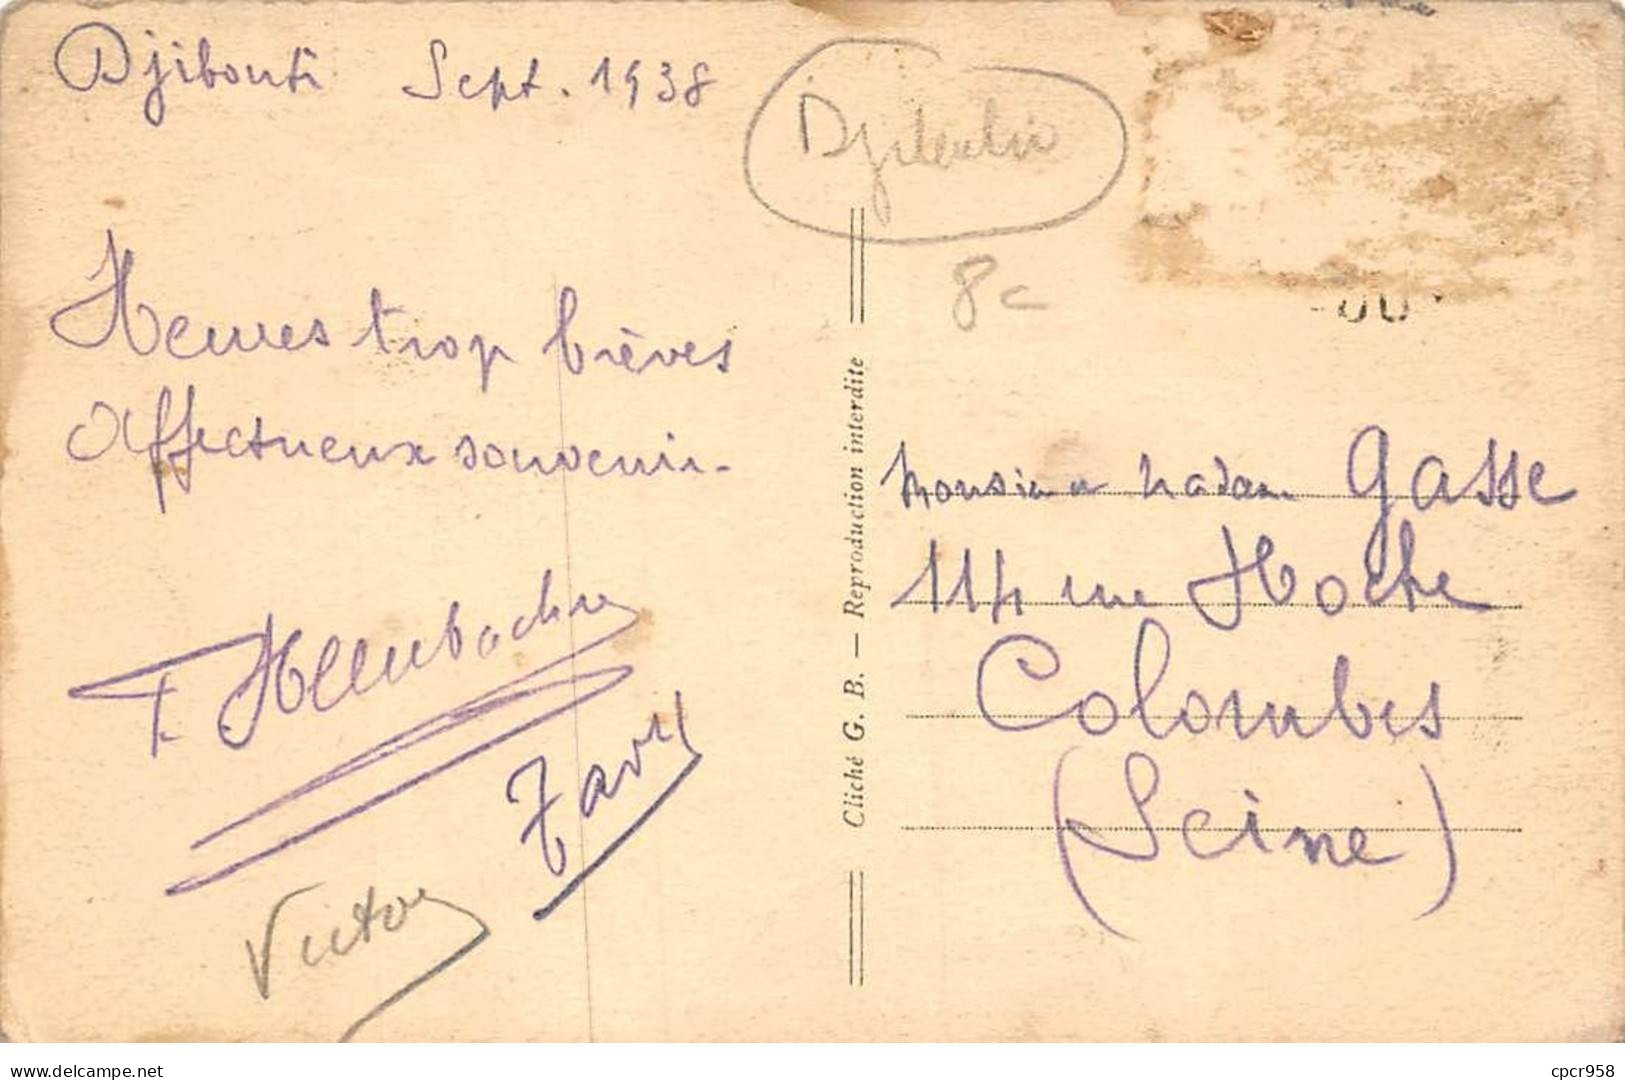 Djibouti Sept. 1938
Heures trop brèves
Affectueux souvenir -
Victor
8c
Cliché G. B. — Reproduction interdite
Monsieur Madam Gasse
114 rue Hoche
Colombes
(Seine)
delcampe.net
cpcr958